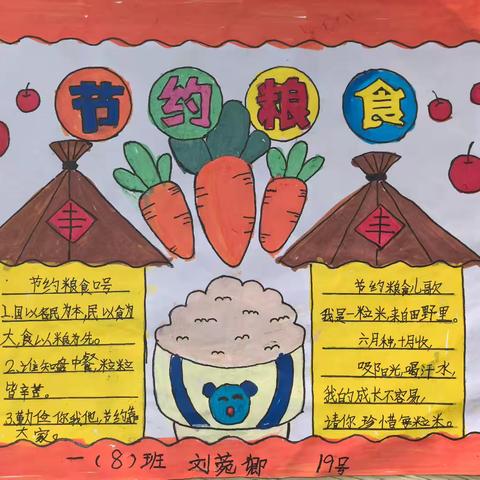 节约粮食
丰
丰
节约粮食口号
1.国以农民为本,民以食为
大,食以粮为先。
2.谁知盘中餐,粒粒
皆辛苦。
3.勤俭你我他,节约靠
大家。
节约粮食儿歌
我是一粒米,来自田野里。
六月种,十月收,
吸阳光,喝汗水,
我的成长不容易,
请你珍惜每粒米。
一(8)班 刘菀卿 19号